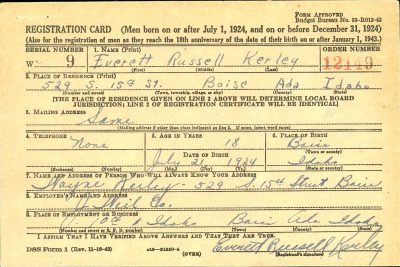 FORM APPROVED
Budget Bureau No. 33-R013-42
REGISTRATION CARD (Men born on or after July 1, 1924, and on or before December 31, 1924)
(Also for the registration of men as they reach the 18th anniversary of the date of their birth on or after January 1, 1943.)
SERIAL NUMBER 1. NAME (Print) ORDER NUMBER
W 9 Everett Russell Kerley 12149
2. PLACE OF RESIDENCE (Print)
529 S. 15th St. Boise Ada Idaho
(Number and street) (Town, township, village, or city) (County) (State)
[THE PLACE OF RESIDENCE GIVEN ON LINE 2 ABOVE WILL DETERMINE LOCAL BOARD
JURISDICTION; LINE 2 OF REGISTRATION CERTIFICATE WILL BE IDENTICAL]
3. MAILING ADDRESS
Same
[Mailing address if other than place indicated on line 2. If same, insert word same]
4. TELEPHONE 5. AGE IN YEARS 6. PLACE OF BIRTH
None 18 Boise
DATE OF BIRTH (Town or county)
July 21 1924 Idaho
(Exchange) (Number) (Mo.) (Day) (Yr.) (State or country)
7. NAME AND ADDRESS OF PERSON WHO WILL ALWAYS KNOW YOUR ADDRESS
Wayne Kerley - 529 S. 15th Street Boise
8. EMPLOYER'S NAME AND ADDRESS
Co.
9. PLACE OF EMPLOYMENT OR BUSINESS
& Idaho Boise Ada Idaho
(Number and street or R. F. D. number) (Town) (County) (State)
I AFFIRM THAT I HAVE VERIFIED ABOVE ANSWERS AND THAT THEY ARE TRUE.
DSS Form 1 (Rev. 11-16-42) (OVER) Everett Russell Kerley
(Registrant's signature)